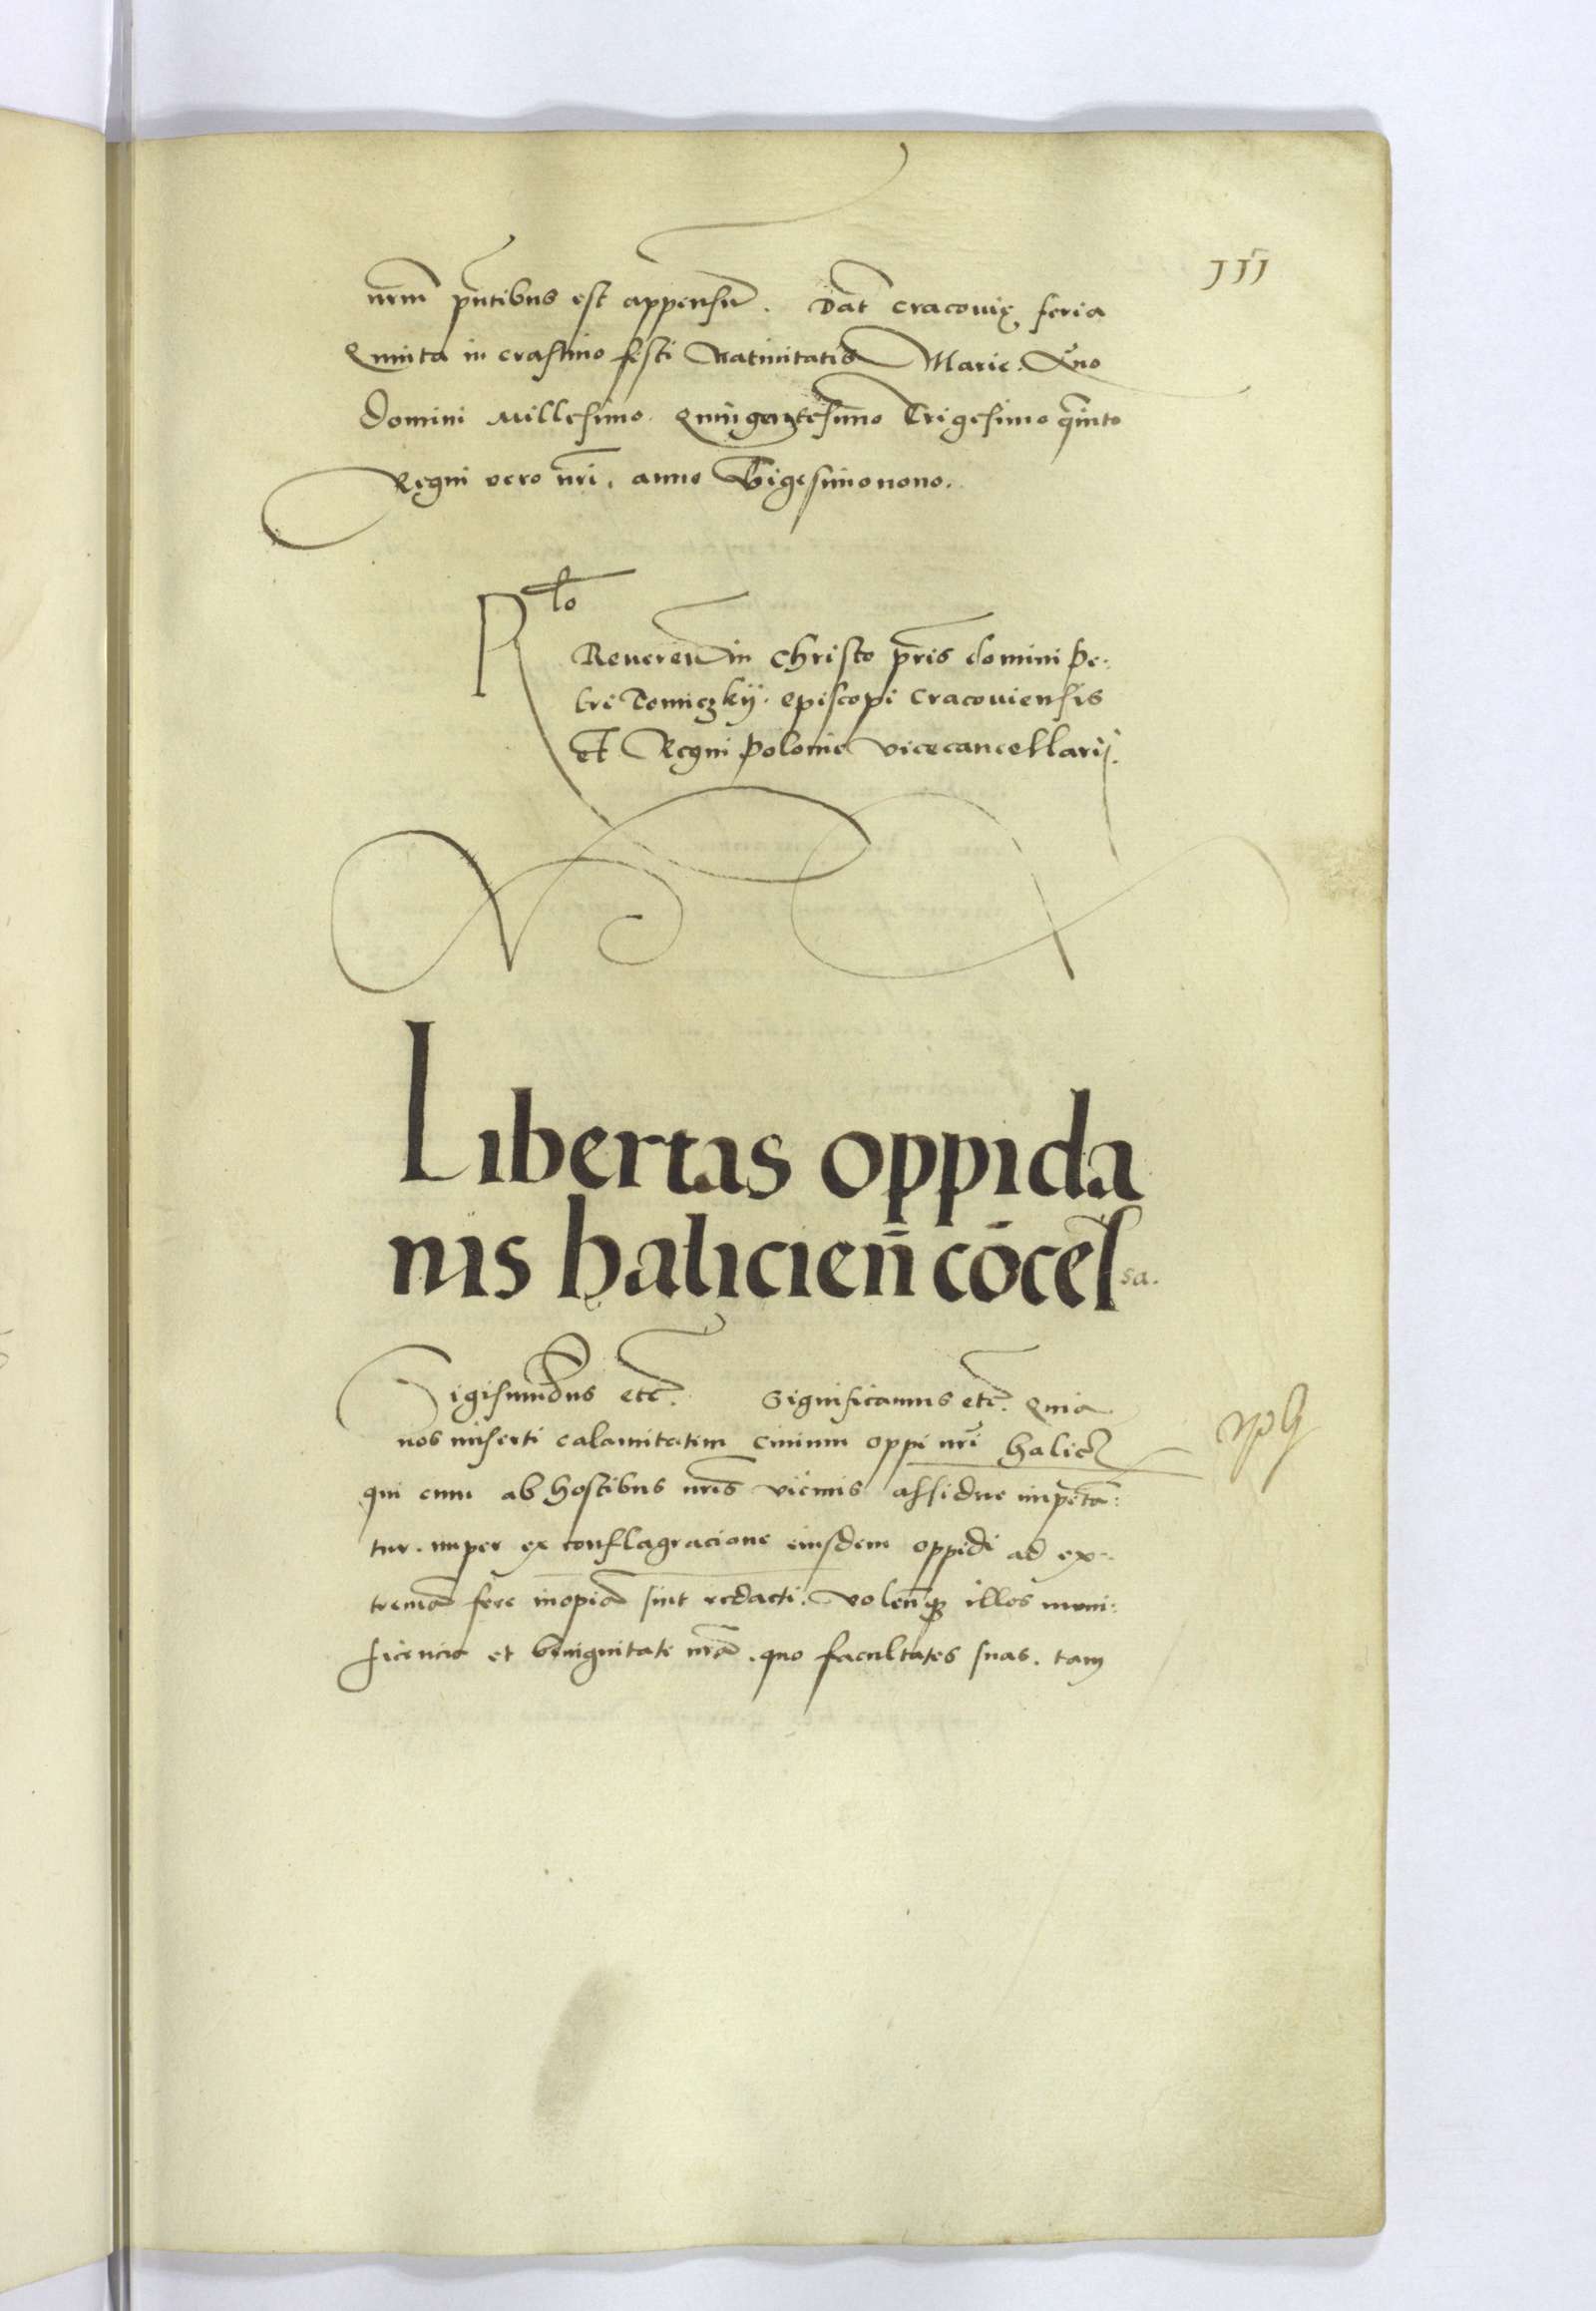 111
nrm pntibus est appensu. Dat Cracovię feria
Quinta in crastino festi Nativitatis Marie. Ano
domini Millesimo Quingentesimo Trigesimo quinto
Regni vero nri. anno Vigesimonono.
Rlo
Reveren in Christo pris domini Pe-
tri Tomiczkij. episcopi Cracoviensis
et Regni Polonie vicecancellarij.
Libertas oppida
nis halicien cōcessa.
Sigismundus etc. Significamus etc. Quia
nos miserti calamitatem civium oppi nri halicz
qui cum ab hostibus nris vicinis assidue impeta-
tur. nuper ex conflagracione eiusdem oppidi ad ex-
tremā fere inopiā sint redacti. Volentesque illos muni-
ficencia et benignitate nrā. quo facultates suas. tam